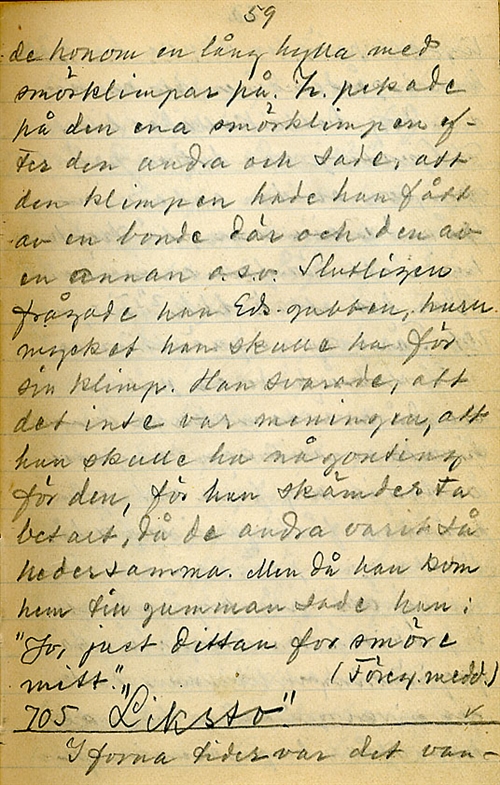 59
de honom en lång hylla med
smörklimpar på. H. pekade
på den ena smörklimpen ef-
ter den andra och sade, att
den klimpen hade han fått
av en bonde där och den av
en annan o.s.v. Slutligen
frågade han Eds-gubben, huru
mycket han skulle ha för
sin klimp. Han svarade, att
det inte var meningen, att
han skulle ha någonting
för den, för han skämdes ta
betalt, då de andra varit så
hedersamma. Men då han kom
hem till gumman sade han:
"Jo, just dittan for smöre
mitt". (Föreg. medd.)
705 "Liksto"
I forna tider var det van-